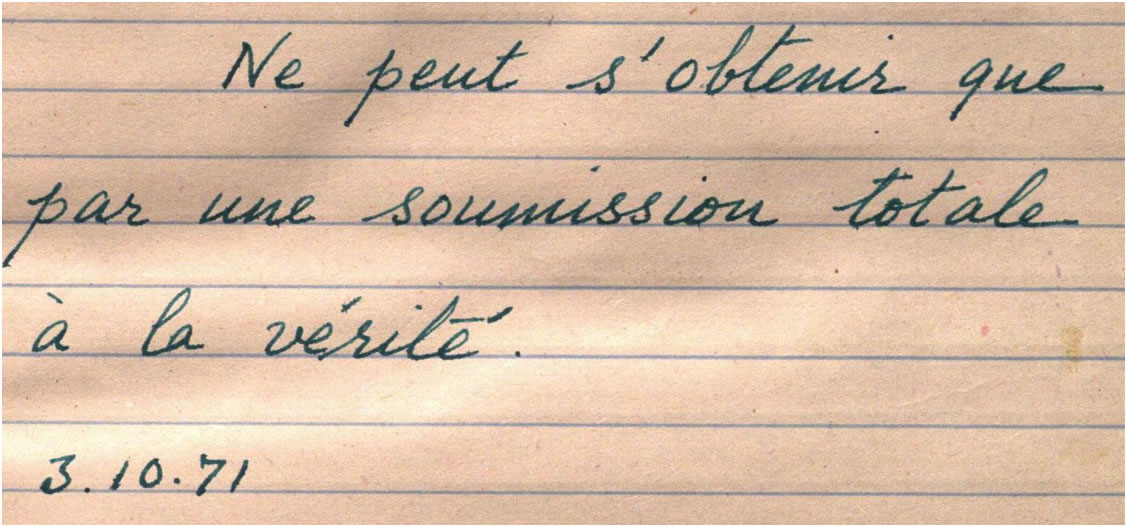 Ne peut s'obtenir que
par une soumission totale
à la vérité.
3.10.71